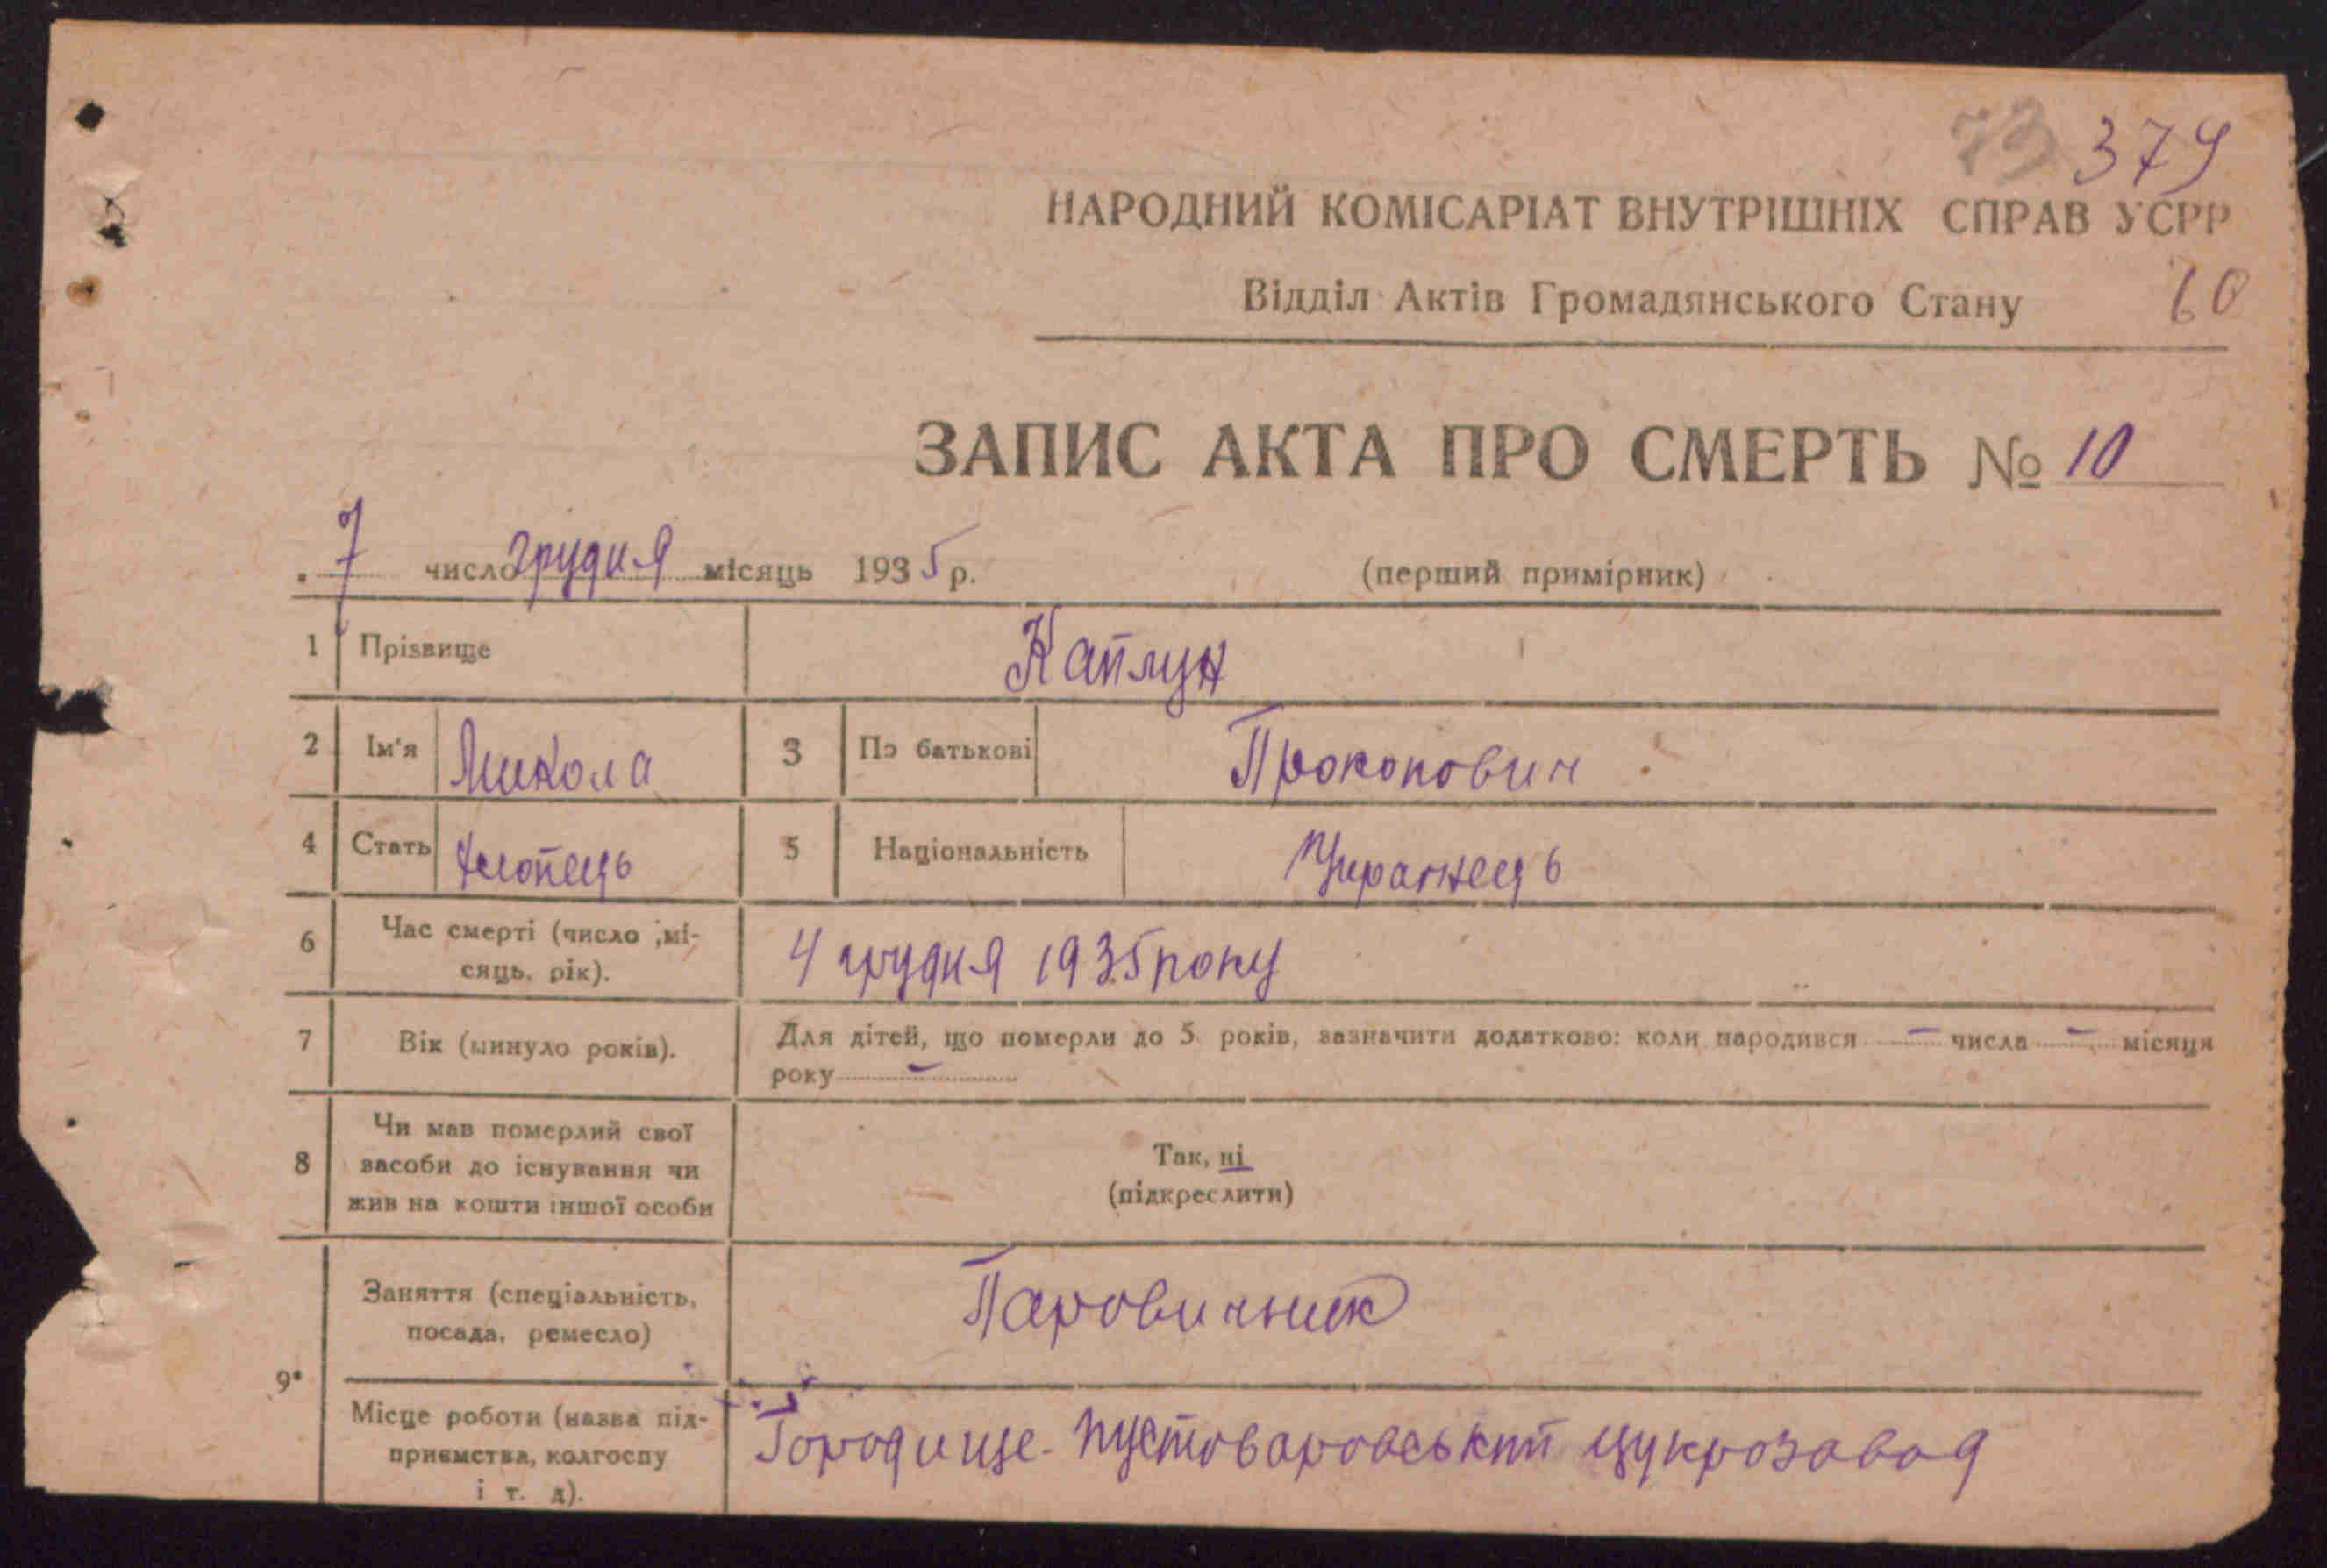 73 379
НАРОДНИЙ КОМІСАРІАТ ВНУТРІШНІХ СПРАВ УСРР
Відділ Актів Громадянського Стану 60
ЗАПИС АКТА ПРО СМЕРТЬ № 10
7 число грудня місяць 1935 р. (перший примірник)
1 Прізвище Каплун
2 Ім'я Микола 3 По батькові Прокопович
4 Стать хлопець 5 Національність Українець
6 Час смерті (число ,мі-
сяць, рік). 4 грудня 1935 року
7 Вік (минуло років). Для дітей, що померли до 5 років, зазначити додатково: коли народився – числа – місяця
року –
8 Чи мав померлий свої
засоби до існування чи
жив на кошти іншої особи
Так, ні
(підкреслити)
9 Заняття (спеціальність,
посада, ремесло) Паровичник
Місце роботи (назва під-
приємства, колгоспу
і т. д). Городище-Пустоваровський цукрозавод